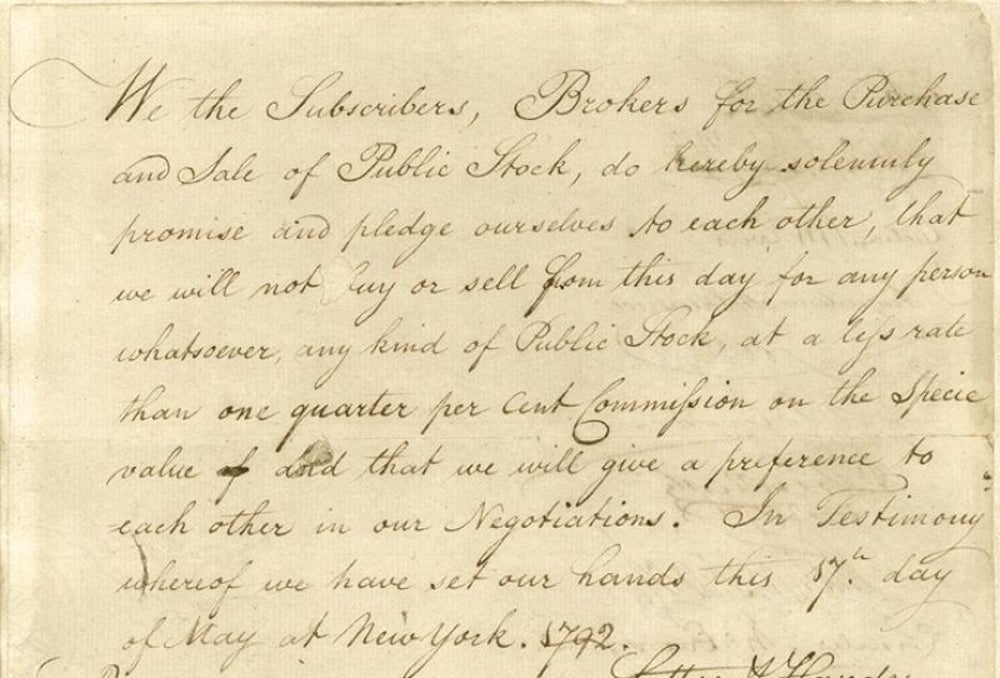 We the Subscribers, Brokers for the Purchase
and Sale of Public Stock, do hereby solemnly
promise and pledge ourselves to each other, that
we will not buy or sell from this day for any person
whatsoever, any kind of Public Stock, at a less rate
than one quarter per Cent Commission on the Specie
value of and that we will give a preference to
each other in our Negotiations. In Testimony
whereof we have set our hands this 17th. day
of May at New York. 1792.